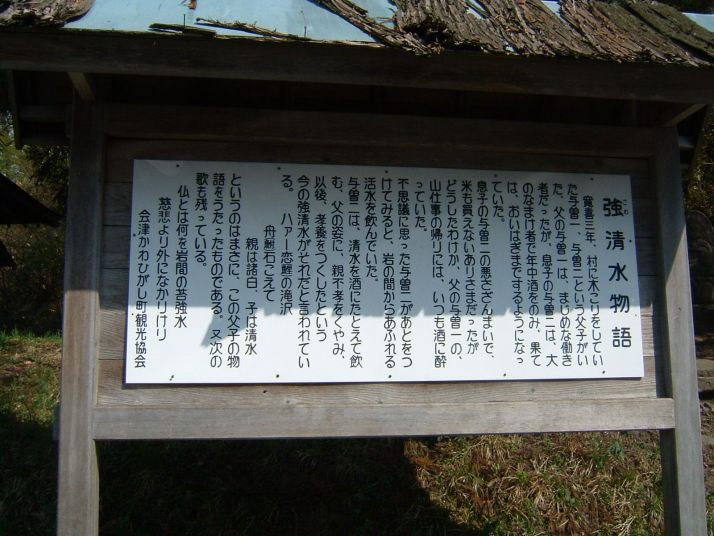 強清水物語
こわ
寛喜三年、村に木こりをしてい
た与曽一、与曽二という父子がい
た。父の与曽一は、まじめな働き
者だったが、息子の与曽二は、大
のなまけ者で年中酒をのみ、果て
は、おいはぎまでするようになっ
ていた。
息子の与曽二の悪さざんまいで、
米も買えないありさまだったが
どうしたわけか、父の与曽一の、
山仕事の帰りには、いつも酒に酔
っていた。
不思議に思った与曽二があとをつ
けてみると、岩の間からあふれる
活水を飲んでいた。
与曽二は、清水を酒にたとえて飲
む、父の姿に、親不孝をくやみ、
以後、孝養をつくしたという
今の強清水がそれだと言われてい
る。
ハァー恋鯉の滝沢
舟鮒石こえて
親は諸白、子は清水
というのはまさに、この父子の物
語をうたったものである。又次の
歌も残っている。
仏とは何を岩間の苔強水
慈悲より外になかりけり
会津かわひがし町観光協会